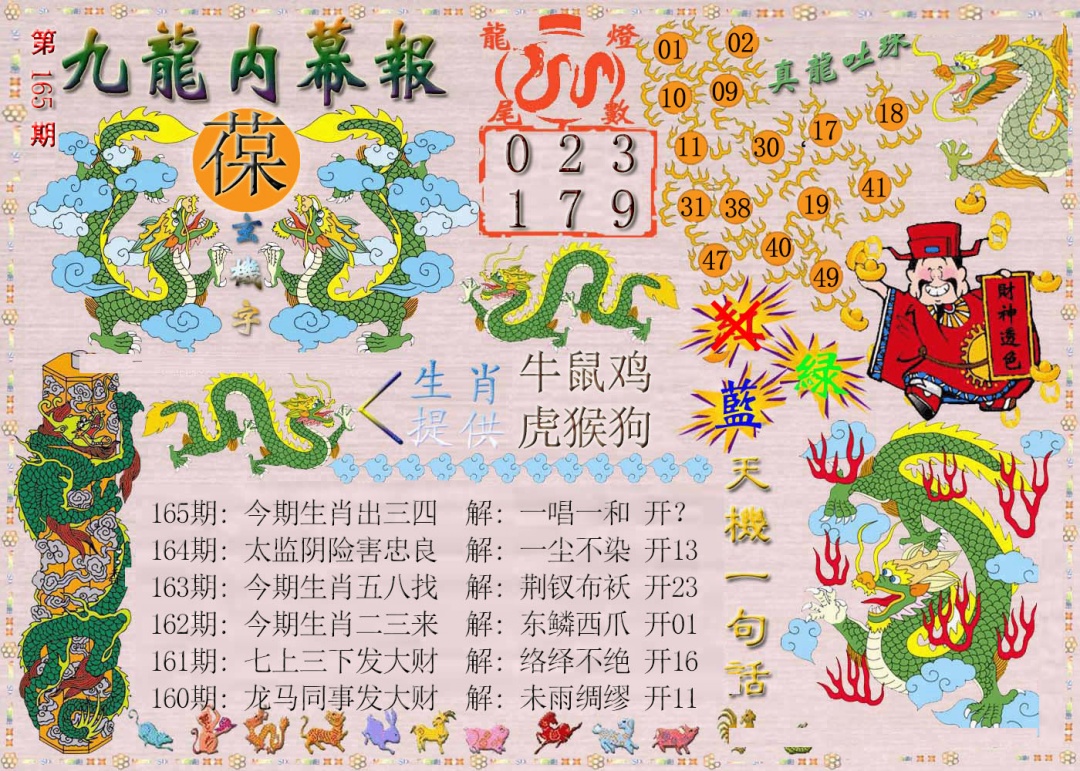 第165期
九龍内幕報
葆
玄機字
龍燈
尾數
0 2 3
1 7 9
真龍吐珠
01 02
10 09
11 30 17 18
31 38 19 41
47 40 49
紅
綠
藍
財神透色
生肖 牛鼠鸡
提供 虎猴狗
165期：今期生肖出三四 解：一唱一和 开？
164期：太监阴险害忠良 解：一尘不染 开13
163期：今期生肖五八找 解：荆钗布袄 开23
162期：今期生肖二三来 解：东鳞西爪 开01
161期：七上三下发大财 解：络绎不绝 开16
160期：龙马同事发大财 解：未雨绸缪 开11
天機一句話